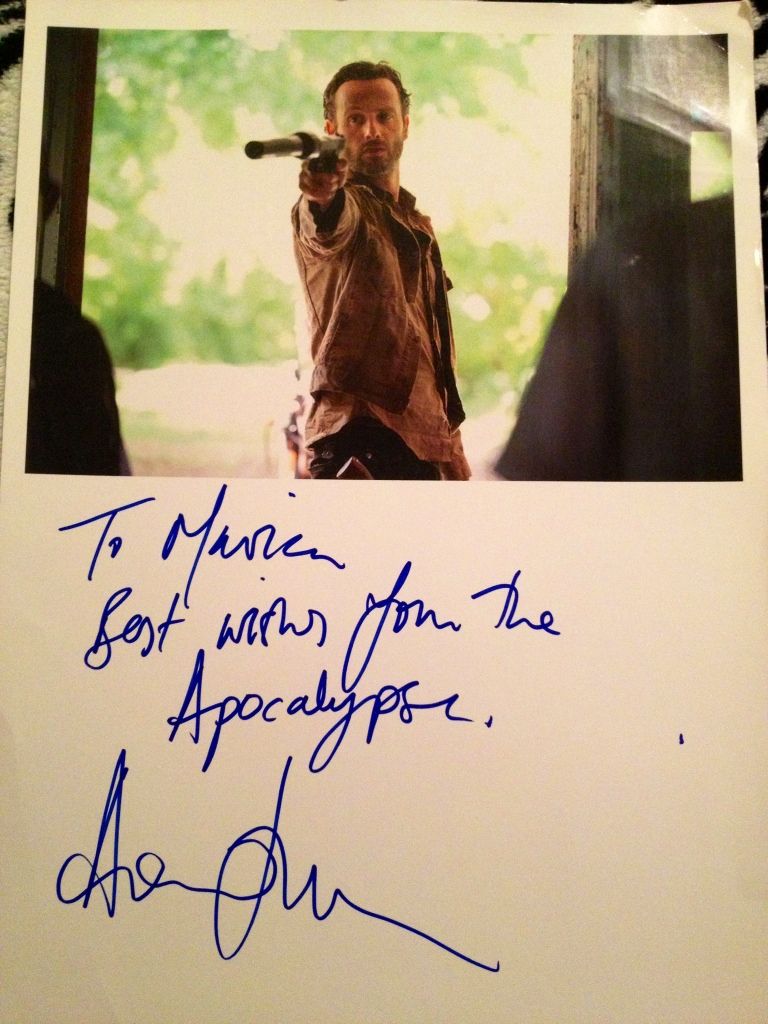 To Marica
Best wishes from The
Apocalypse.